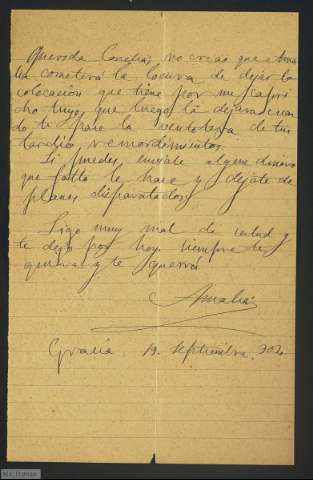 Querida Conchia, no creas que
cometerá la locura de dejar la
colocacion que tiene por un capri
cho tuyo, que luego la dejara cuan
do te pase la ventolera de tus
tardios remordimientos.
Si puedes, enviale algun dinero
que falta le hace y dejate de
planes disparatados
Sigo muy mal de salud y
te dejo por hoy. Siempre te
quiere y te querrá
Amalia
Gracia. 19 Septiembre. 902.